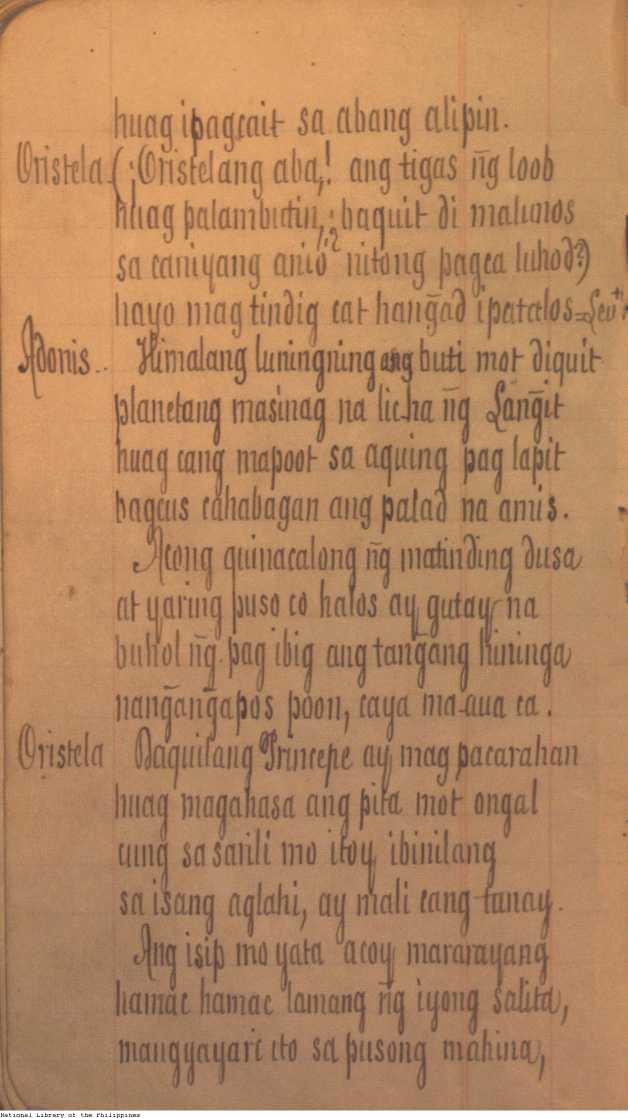 huag ipagcait sa abang alipin.
Oristela. (¡Oristelang aba,! ang tigas n͠g loob
huag palambutin, ¿baquit di malunos
sa caniyang anio nitong pagca luhod?)
hayo mag tindig cat hang̃ad ipatalos
Adonis.. Himalang luningning ang buti mot diquit
planetang masinag na licha n͠g Lang̃it
huag cang mapoot sa aquing pag lapit
bagcus cahabagan ang palad na amis.
Acong quinacalong n͠g matinding dusa
at yaring puso co halos ay gutay na
buhol n͠g pag ibig ang tang̃ang hininga
nang̃ang̃apos poon, caya ma-aua ca.
Oristela Baquitang Principe ay mag pacarahan
huag magahasa ang pita mot ongal
cung sa sarili mo itoy ibinilang
sa isang aglahi, ay mali cang tunay.
Ang isip mo yata acoy mararayang
hamac hamac lamang n͠g iyong salita,
mangyayari ito sa pusong mahina,
National Library of the Philippines